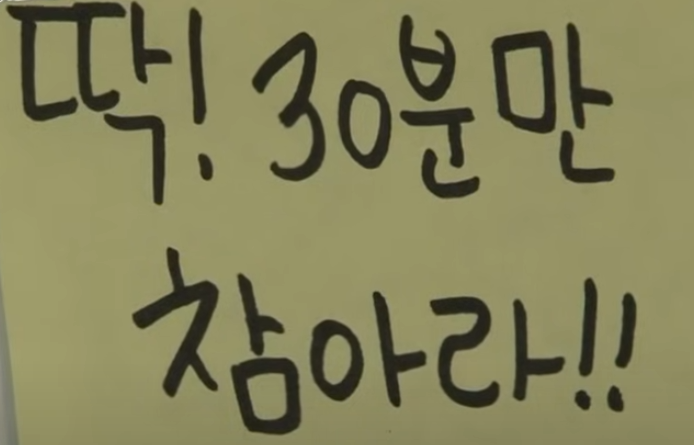 딱! 30분만
참아라!!